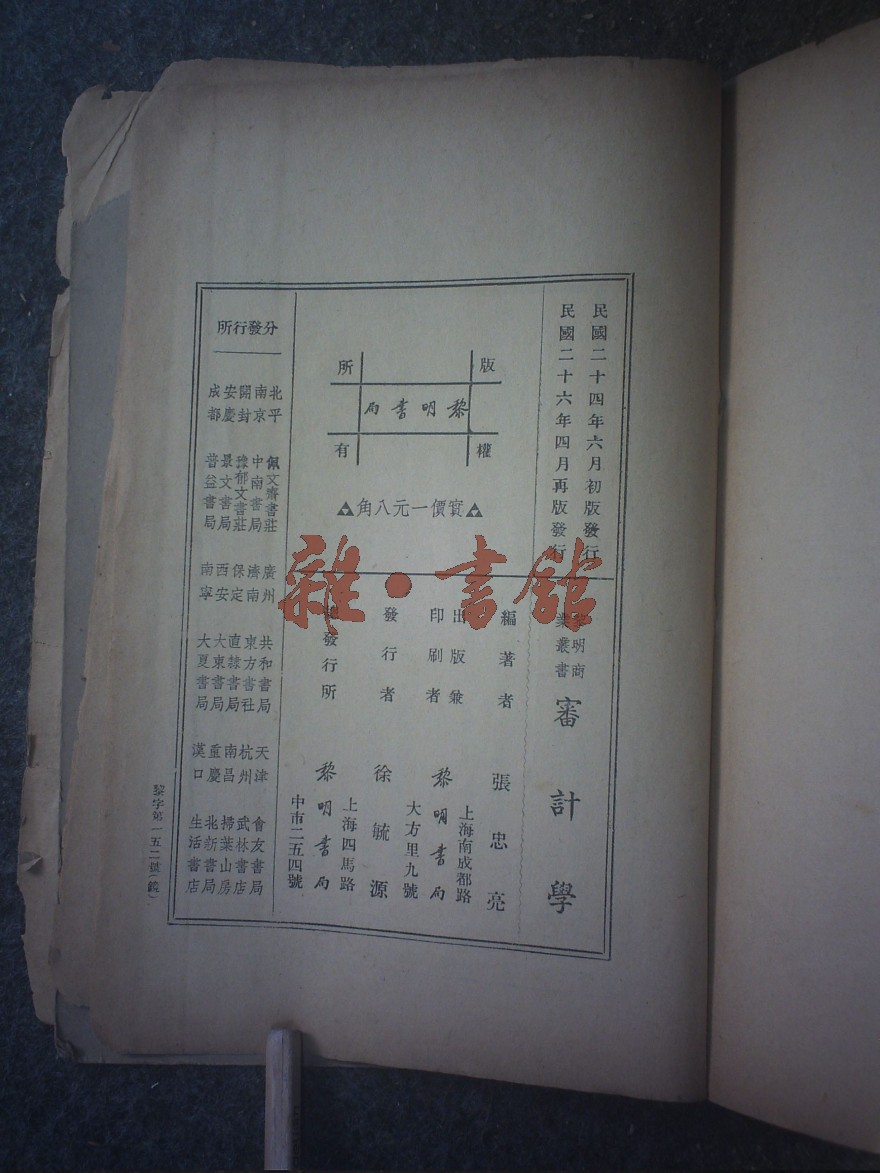 民國二十四年六月初版發行
民國二十六年四月再版發行
黎明商
業叢書
審計學
版權所有
黎明書局
實價一元八角
編著者 張忠亮
出版兼
印刷者
上海南成都路
黎明書局
大方里九號
發行者 徐毓源
總發行所
上海四馬路
黎明書局
中市二五四號
分發行所
北平 佩文齋書莊
南京 中南書局
開封 豫郁文書莊
安慶 景文書局
成都 普益書局
廣州 共和書局
濟南 東方書社
保定 直隸書局
西安 大東書局
南寧 大夏書局
天津 會友書局
杭州 武林書店
南昌 掃葉山房
重慶 北新書局
漢口 生活書店
黎字第一五二號
雜·書館